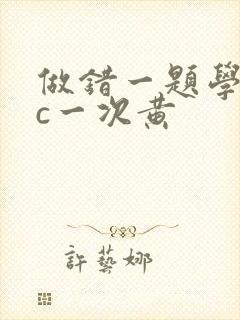 做錯一題學
c一次黄
許藝娜